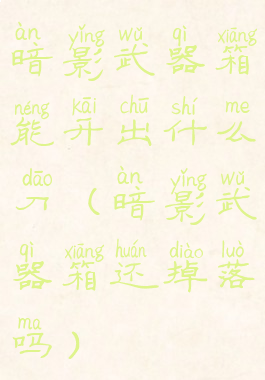 àn yǐng wǔ qì xiāng
暗影武器箱
néng kāi chū shí me
能开出什么
dāo àn yǐng wǔ
刀（暗影武
qì xiāng huán diào luò
器箱还掉落
ma
吗）